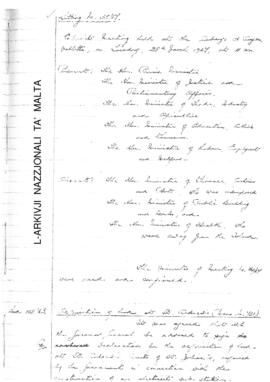 Sitting No.
Cabinet Meeting held at the Auberge d'Aragon
Valletta, on Tuesday, 28th March, 1967, at
Present: The Hon. Prime Minister
The Hon. Minister of Justice and
Parliamentary Affairs
The Hon. Minister of Trade, Industry
and Agriculture
The Hon. Minister of Education, Culture
and Tourism
The Hon. Minister of Labour, Employment
and Welfare.
The Hon. Minister of Finance, Customs
and Ports. He was
The Hon. Minister of Public Building
and Works, and
The Hon. Minister of Health. He
were away from the Island.
The minutes of Meeting No.
were read and confirmed.
of land at St.
It was agreed that
the Governor General be advised to sign the
declaration for the acquisition of land
at St. limits of St. Julian's, required
by the Government in connection with the
construction of an electricity sub-station.
L-ARKIVJI NAZZJONALI TA' MALTA